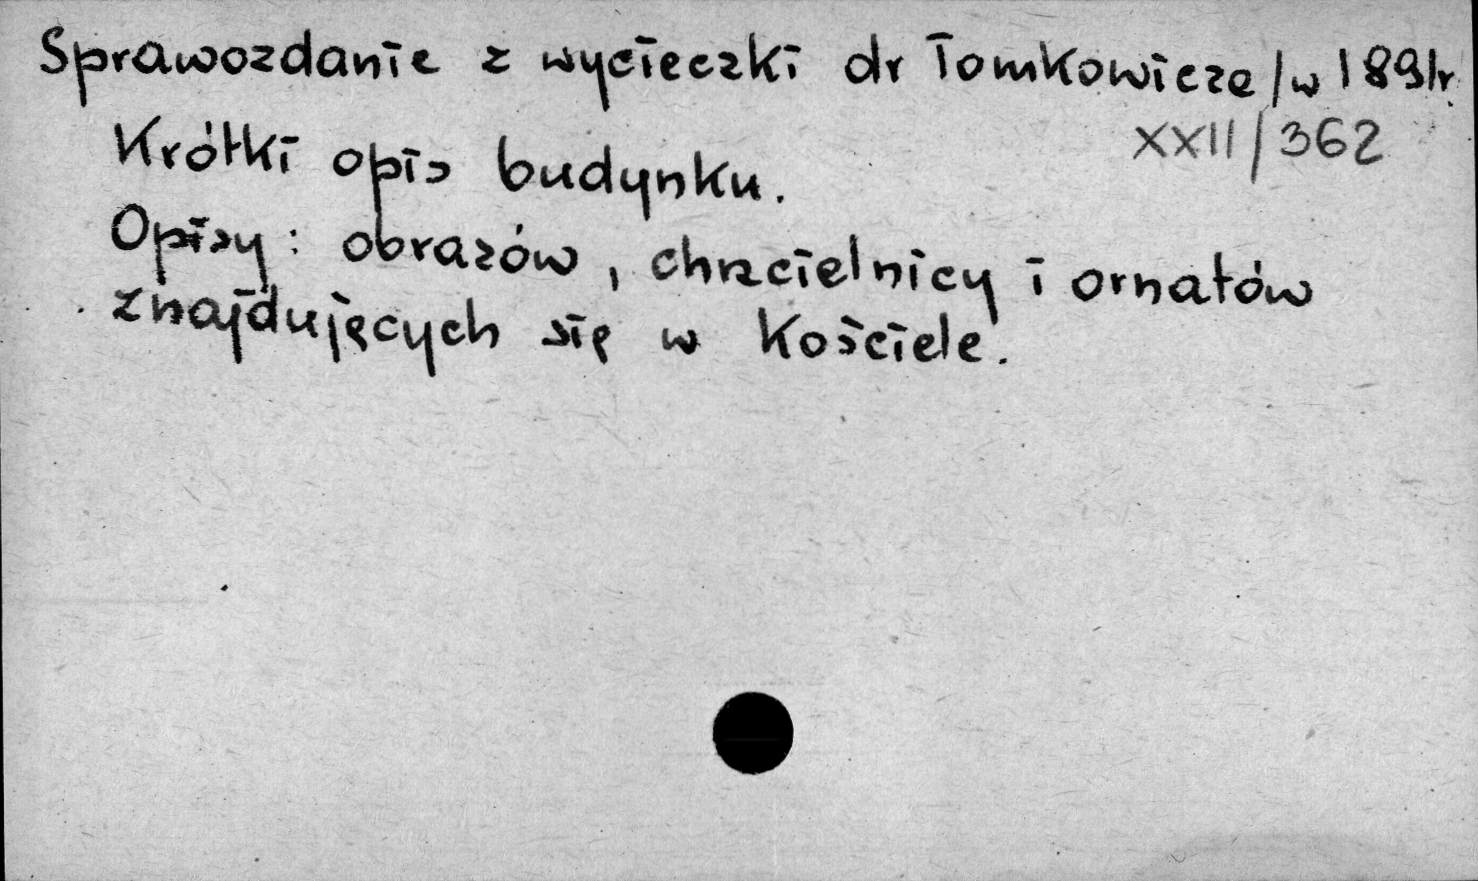 Sprawozdanie z wycieczki dr Tomkowicza /w 1891r.
XXII/362
Krótki opis budynku.
Opisy: obrazów, chrzcielnicy i ornatów
znajdujących się w Kościele.